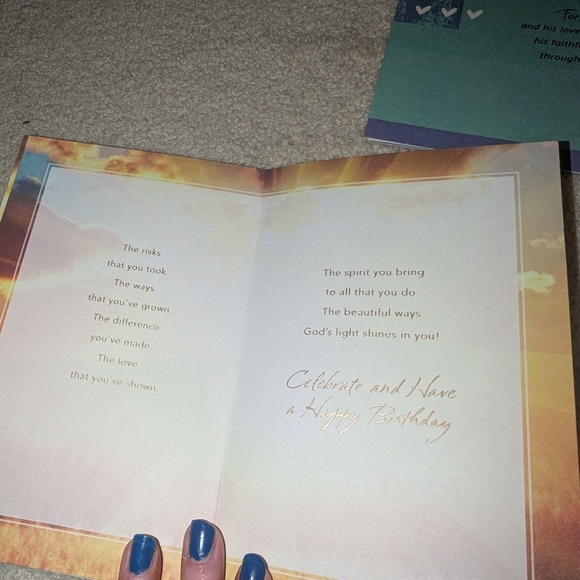 The risks
that you took.
The ways
that you've grown.
The difference
you've made.
The love
that you've shown.
The spirit you bring
to all that you do.
The beautiful ways
God's light shines in you!
Celebrate and Have
a Happy Birthday
For
and his love
his faithf
through